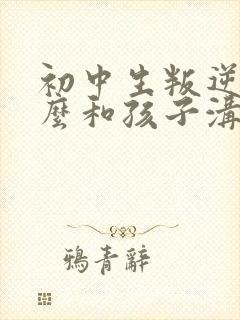 初中生叛逆
麼和孩子溝
鴉青辭